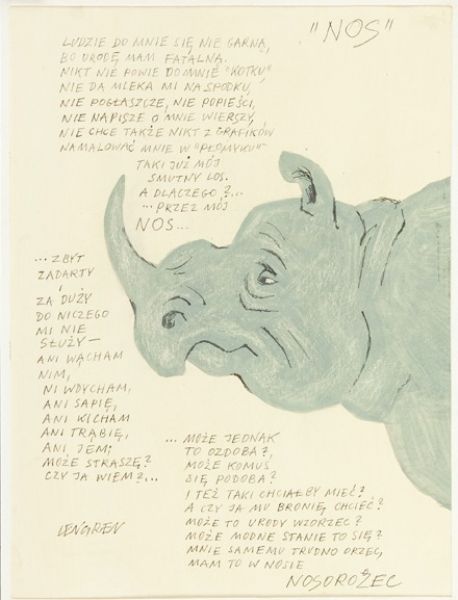 "NOS"
LUDZIE DO MNIE SIĘ NIE GARNĄ,
BO URODĘ MAM FATALNĄ.
NIKT NIE POWIE DO MNIE "KOTKU"
NIE DA MLEKA MI NA SPODKU,
NIE POGŁASZCZE, NIE POPIEŚCI,
NIE NAPISZE O MNIE WIERSZY,
NIE CHCE TAKŻE NIKT Z GRAFIKÓW
NAMALOWAĆ MNIE W "PŁOMYKU"—
TAKI JUŻ MÓJ
SMUTNY LOS.
A DLACZEGO?...
...PRZEZ MÓJ
NOS...
...ZBYT
ZADARTY
I
ZA DUŻY
DO NICZEGO
MI NIE
SŁUŻY—
ANI WĄCHAM
NIM,
NI WDYCHAM,
ANI SAPIĘ,
ANI KICHAM
ANI TRĄBIĘ,
ANI JEM;
MOŻE STRASZĘ?
CZY JA WIEM?...
...MOŻE JEDNAK
TO OZDOBA?,
MOŻE KOMUŚ
SIĘ PODOBA?
I TEŻ TAKI CHCIAŁBY MIEĆ?
A CZY JA MU BRONIĘ CHCIEĆ?
MOŻE TO URODY WZORZEC?
MOŻE MODNE STANIE TO SIĘ?
MNIE SAMEMU TRUDNO ORZEC,
MAM TO W NOSIE
NOSOROŻEC
LENGREN